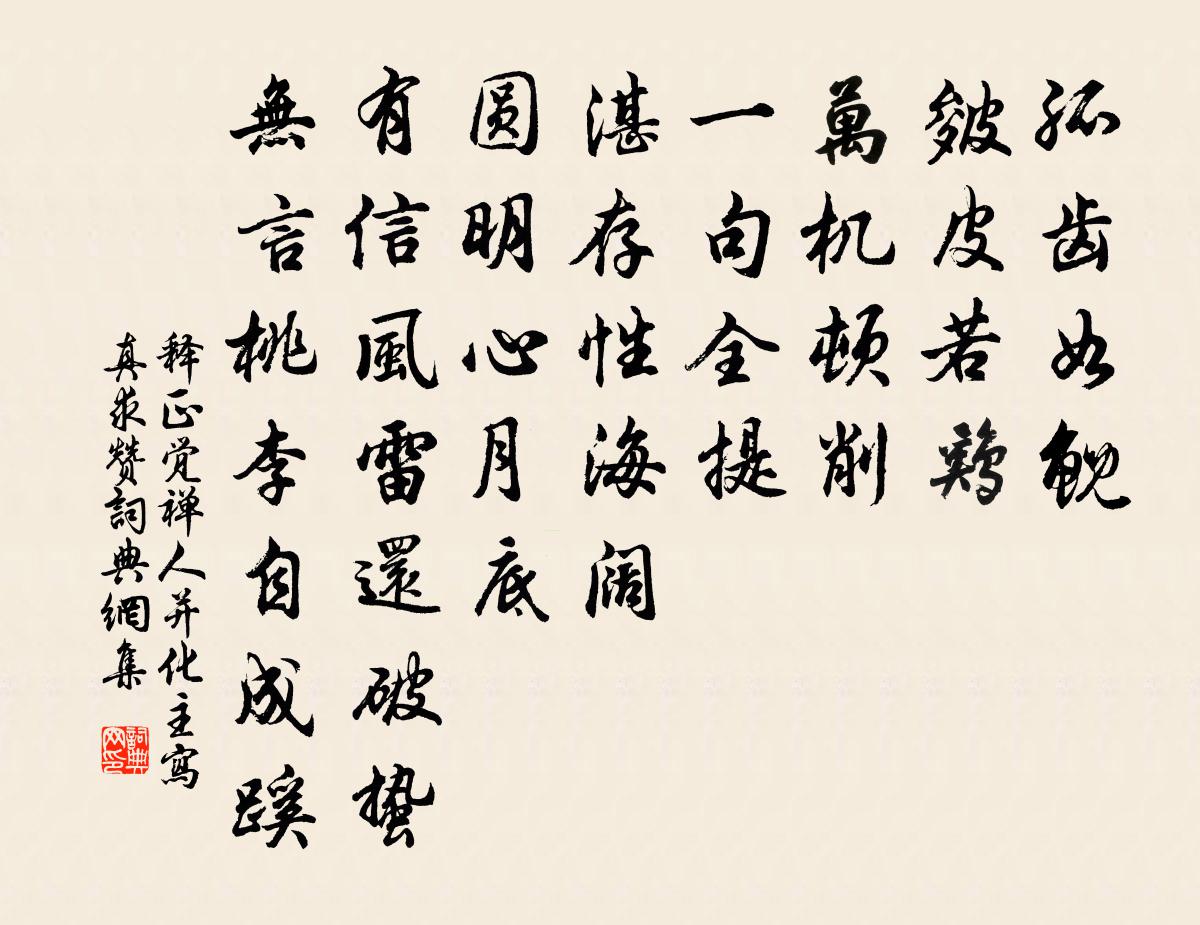 孤齿如鲵
皺皮若鷄
萬机頓削
一句全提
湛存性海阔
圆明心月底
有信風雷還破蛰
無言桃李自成蹊
释正觉禅人并化主寫
真求赞詞典網集
詞典网印